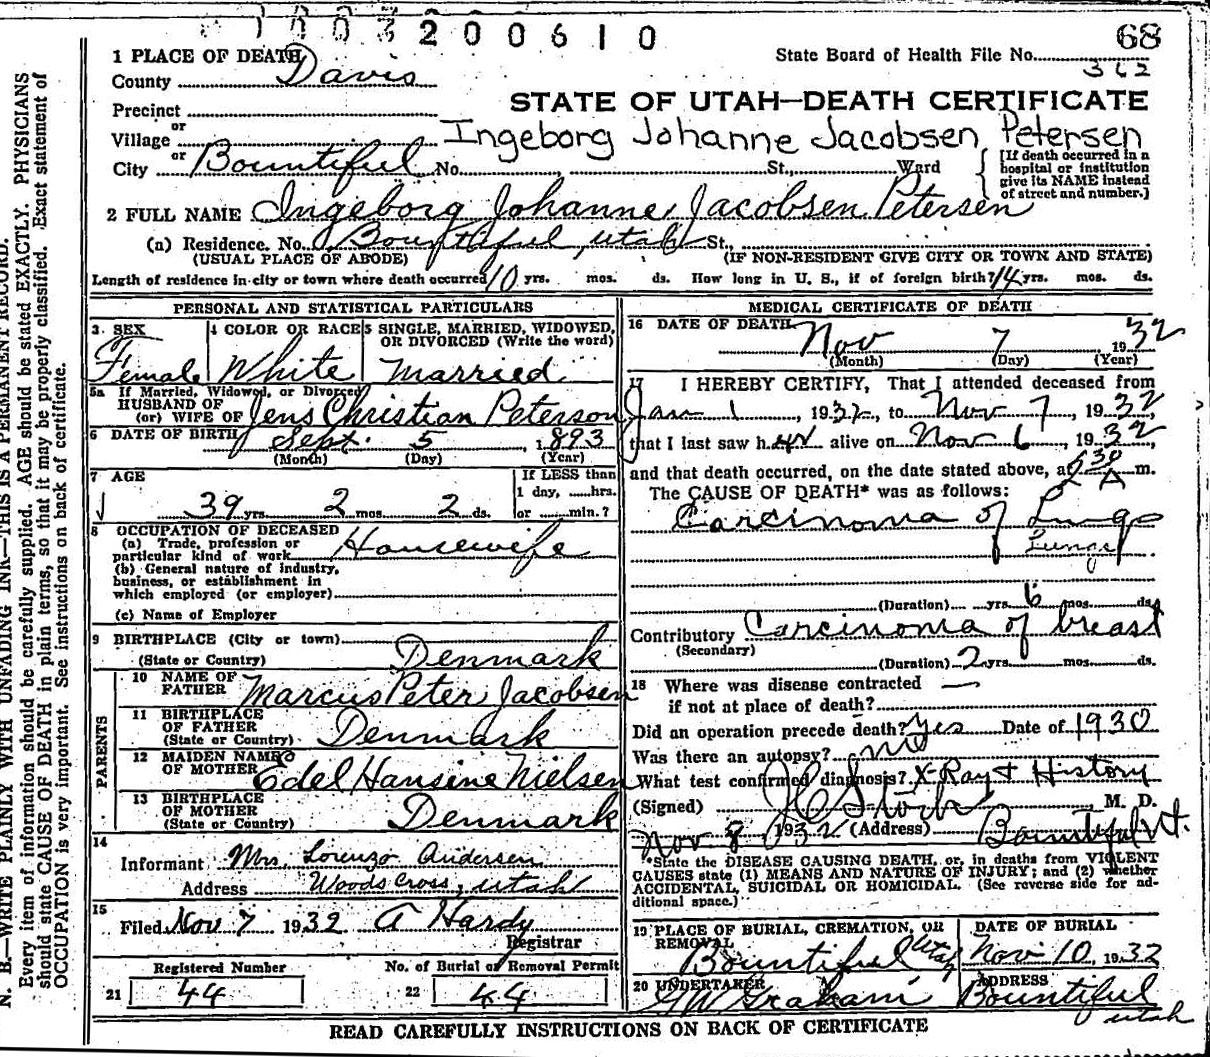 1003200610
68
1 PLACE OF DEATH
State Board of Health File No.
362
County Davis
STATE OF UTAH—DEATH CERTIFICATE
Precinct
or
Village
Ingeborg Johanne Jacobsen Petersen
or
City Bountiful No. St., Ward
[If death occurred in a
hospital or institution
give its NAME instead
of street and number.]
2 FULL NAME Ingeborg Johanne Jacobsen Petersen
(a) Residence. No. Bountiful, utah St.,
(USUAL PLACE OF ABODE) (IF NON-RESIDENT GIVE CITY OR TOWN AND STATE)
Length of residence in city or town where death occurred 10 yrs. mos. ds. How long in U. S., if of foreign birth? 14 yrs. mos. ds.
PERSONAL AND STATISTICAL PARTICULARS
3 SEX
Female
4 COLOR OR RACE
White
5 SINGLE, MARRIED, WIDOWED,
OR DIVORCED (Write the word)
Married
5a If Married, Widowed, or Divorced
HUSBAND OF
(or) WIFE OF Jens Christian Peterson
6 DATE OF BIRTH Sept. 5 1893
(Month) (Day) (Year)
7 AGE
39 yrs. 2 mos. 2 ds.
If LESS than
1 day, ......hrs.
or ......min.?
8 OCCUPATION OF DECEASED
(a) Trade, profession or
particular kind of work Housewife
(b) General nature of industry,
business, or establishment in
which employed (or employer)
(c) Name of Employer
9 BIRTHPLACE (City or town)
(State or Country) Denmark
PARENTS
10 NAME OF
FATHER Marcus Peter Jacobsen
11 BIRTHPLACE
OF FATHER
(State or Country) Denmark
12 MAIDEN NAME
OF MOTHER Edel Hansine Nielsen
13 BIRTHPLACE
OF MOTHER
(State or Country) Denmark
14
Informant Mrs. Lorenzo Andersen
Address Woods Cross, utah
15
Filed Nov 7 1932 A Hardy
Registrar
Registered Number No. of Burial or Removal Permit
21 44 22 44
MEDICAL CERTIFICATE OF DEATH
16 DATE OF DEATH
Nov 7 1932
(Month) (Day) (Year)
17 I HEREBY CERTIFY, That I attended deceased from
Jan 1, 1932, to Nov 7, 1932,
that I last saw her alive on Nov 6, 1932,
and that death occurred, on the date stated above, at 5 30 A m.
The CAUSE OF DEATH* was as follows:
Carcinoma of Lungs
Lungs
(Duration) yrs. 6 mos. ds.
Contributory Carcinoma of breast
(Secondary)
(Duration) 2 yrs. mos. ds.
18 Where was disease contracted —
if not at place of death?
Did an operation precede death? Yes Date of 1930
Was there an autopsy? no
What test confirmed diagnosis? X-Ray + History
(Signed) M. D.
Nov 8 1932 (Address) Bountiful Ut.
*State the DISEASE CAUSING DEATH, or, in deaths from VIOLENT
CAUSES state (1) MEANS AND NATURE OF INJURY; and (2) whether
ACCIDENTAL, SUICIDAL OR HOMICIDAL. (See reverse side for ad-
ditional space.)
19 PLACE OF BURIAL, CREMATION, OR
REMOVAL
Bountiful Utah
DATE OF BURIAL
Nov 10, 1932
20 UNDERTAKER
Graham
ADDRESS
Bountiful
utah
READ CAREFULLY INSTRUCTIONS ON BACK OF CERTIFICATE
N. B.—WRITE PLAINLY WITH UNFADING INK—THIS IS A PERMANENT RECORD.
Every item of information should be carefully supplied. AGE should be stated EXACTLY. PHYSICIANS
should state CAUSE OF DEATH in plain terms, so that it may be properly classified. Exact statement of
OCCUPATION is very important. See instructions on back of certificate.